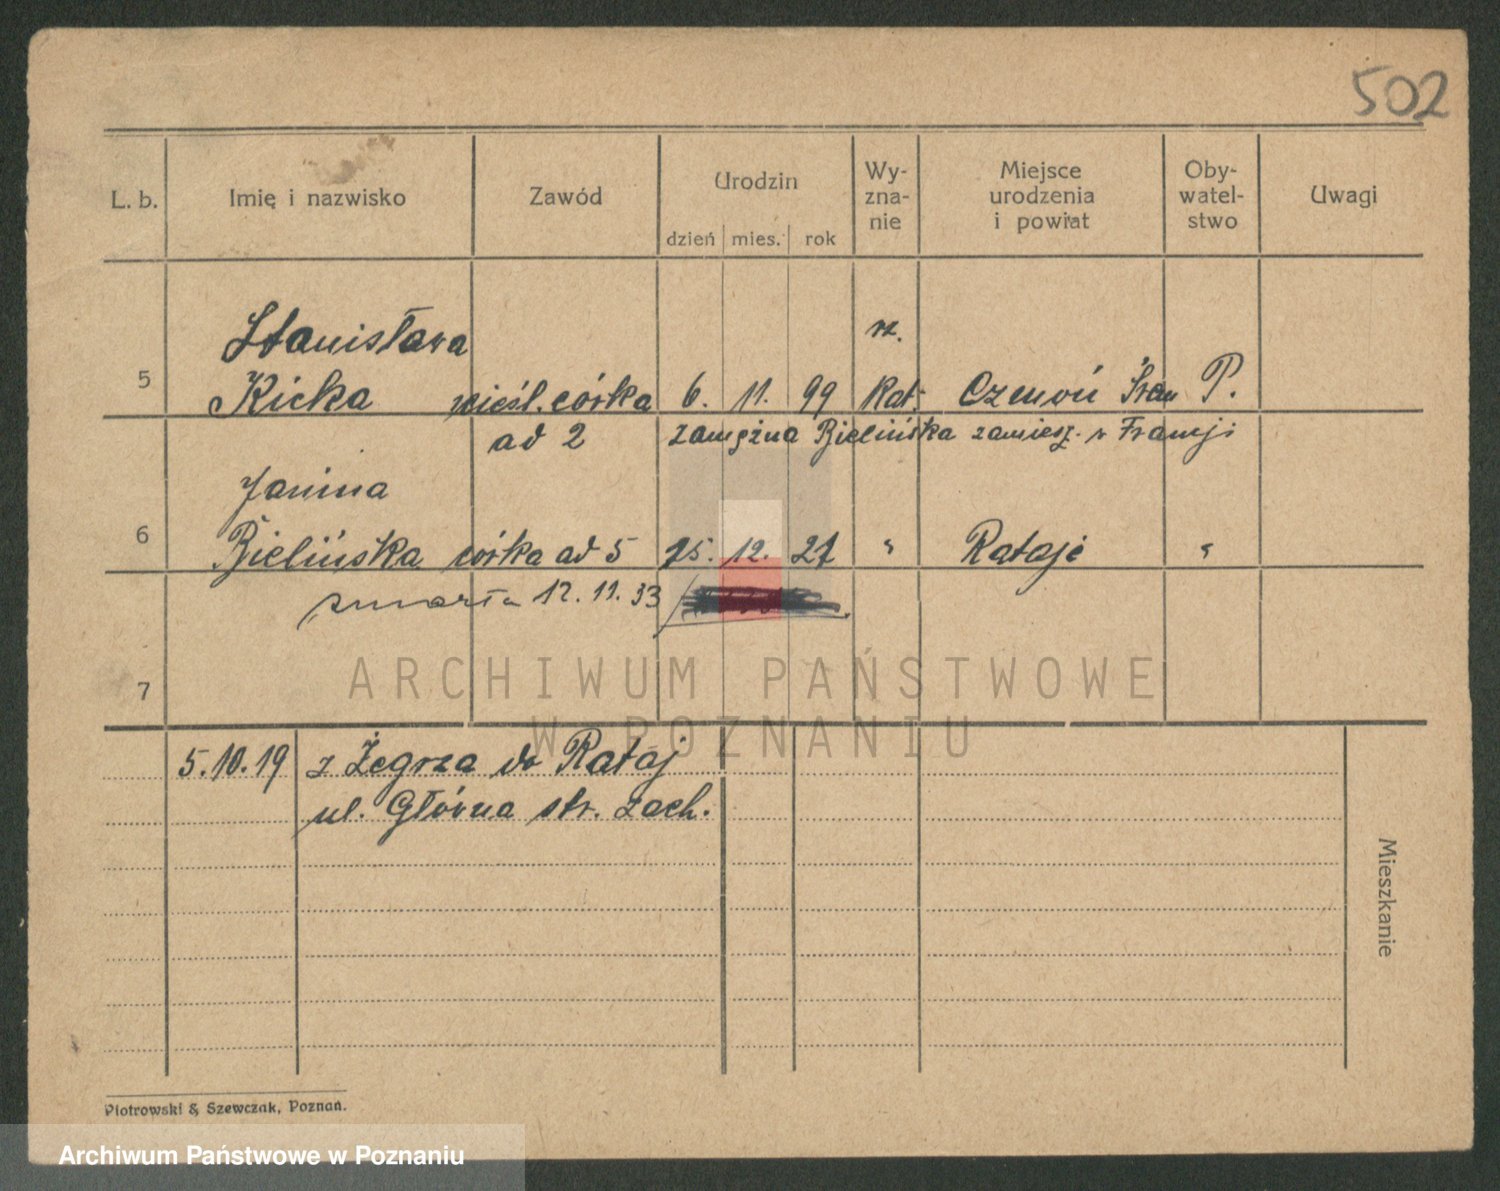 502
L. b.
Imię i nazwisko
Zawód
Urodzin
dzień mies. rok
Wy-
zna-
nie
Miejsce
urodzenia
i powiat
Oby-
watel-
stwo
Uwagi
Stanisława rz.
5 Kicka córka 6. 11. 99 Kat. P.
ad 2 zamężna Bielińska zamiesz. w Francji
Janina
6 Bielińska córka ad 5 15. 12. 27 " Rataje "
zmarła 12. 11. 33
7
ARCHIWUM PAŃSTWOWE
W POZNANIU
5.10.19 z Żegrza do Rataj
ul. Główna str. zach.
Mieszkanie
Piotrowski & Szewczak, Poznań.
Archiwum Państwowe w Poznaniu